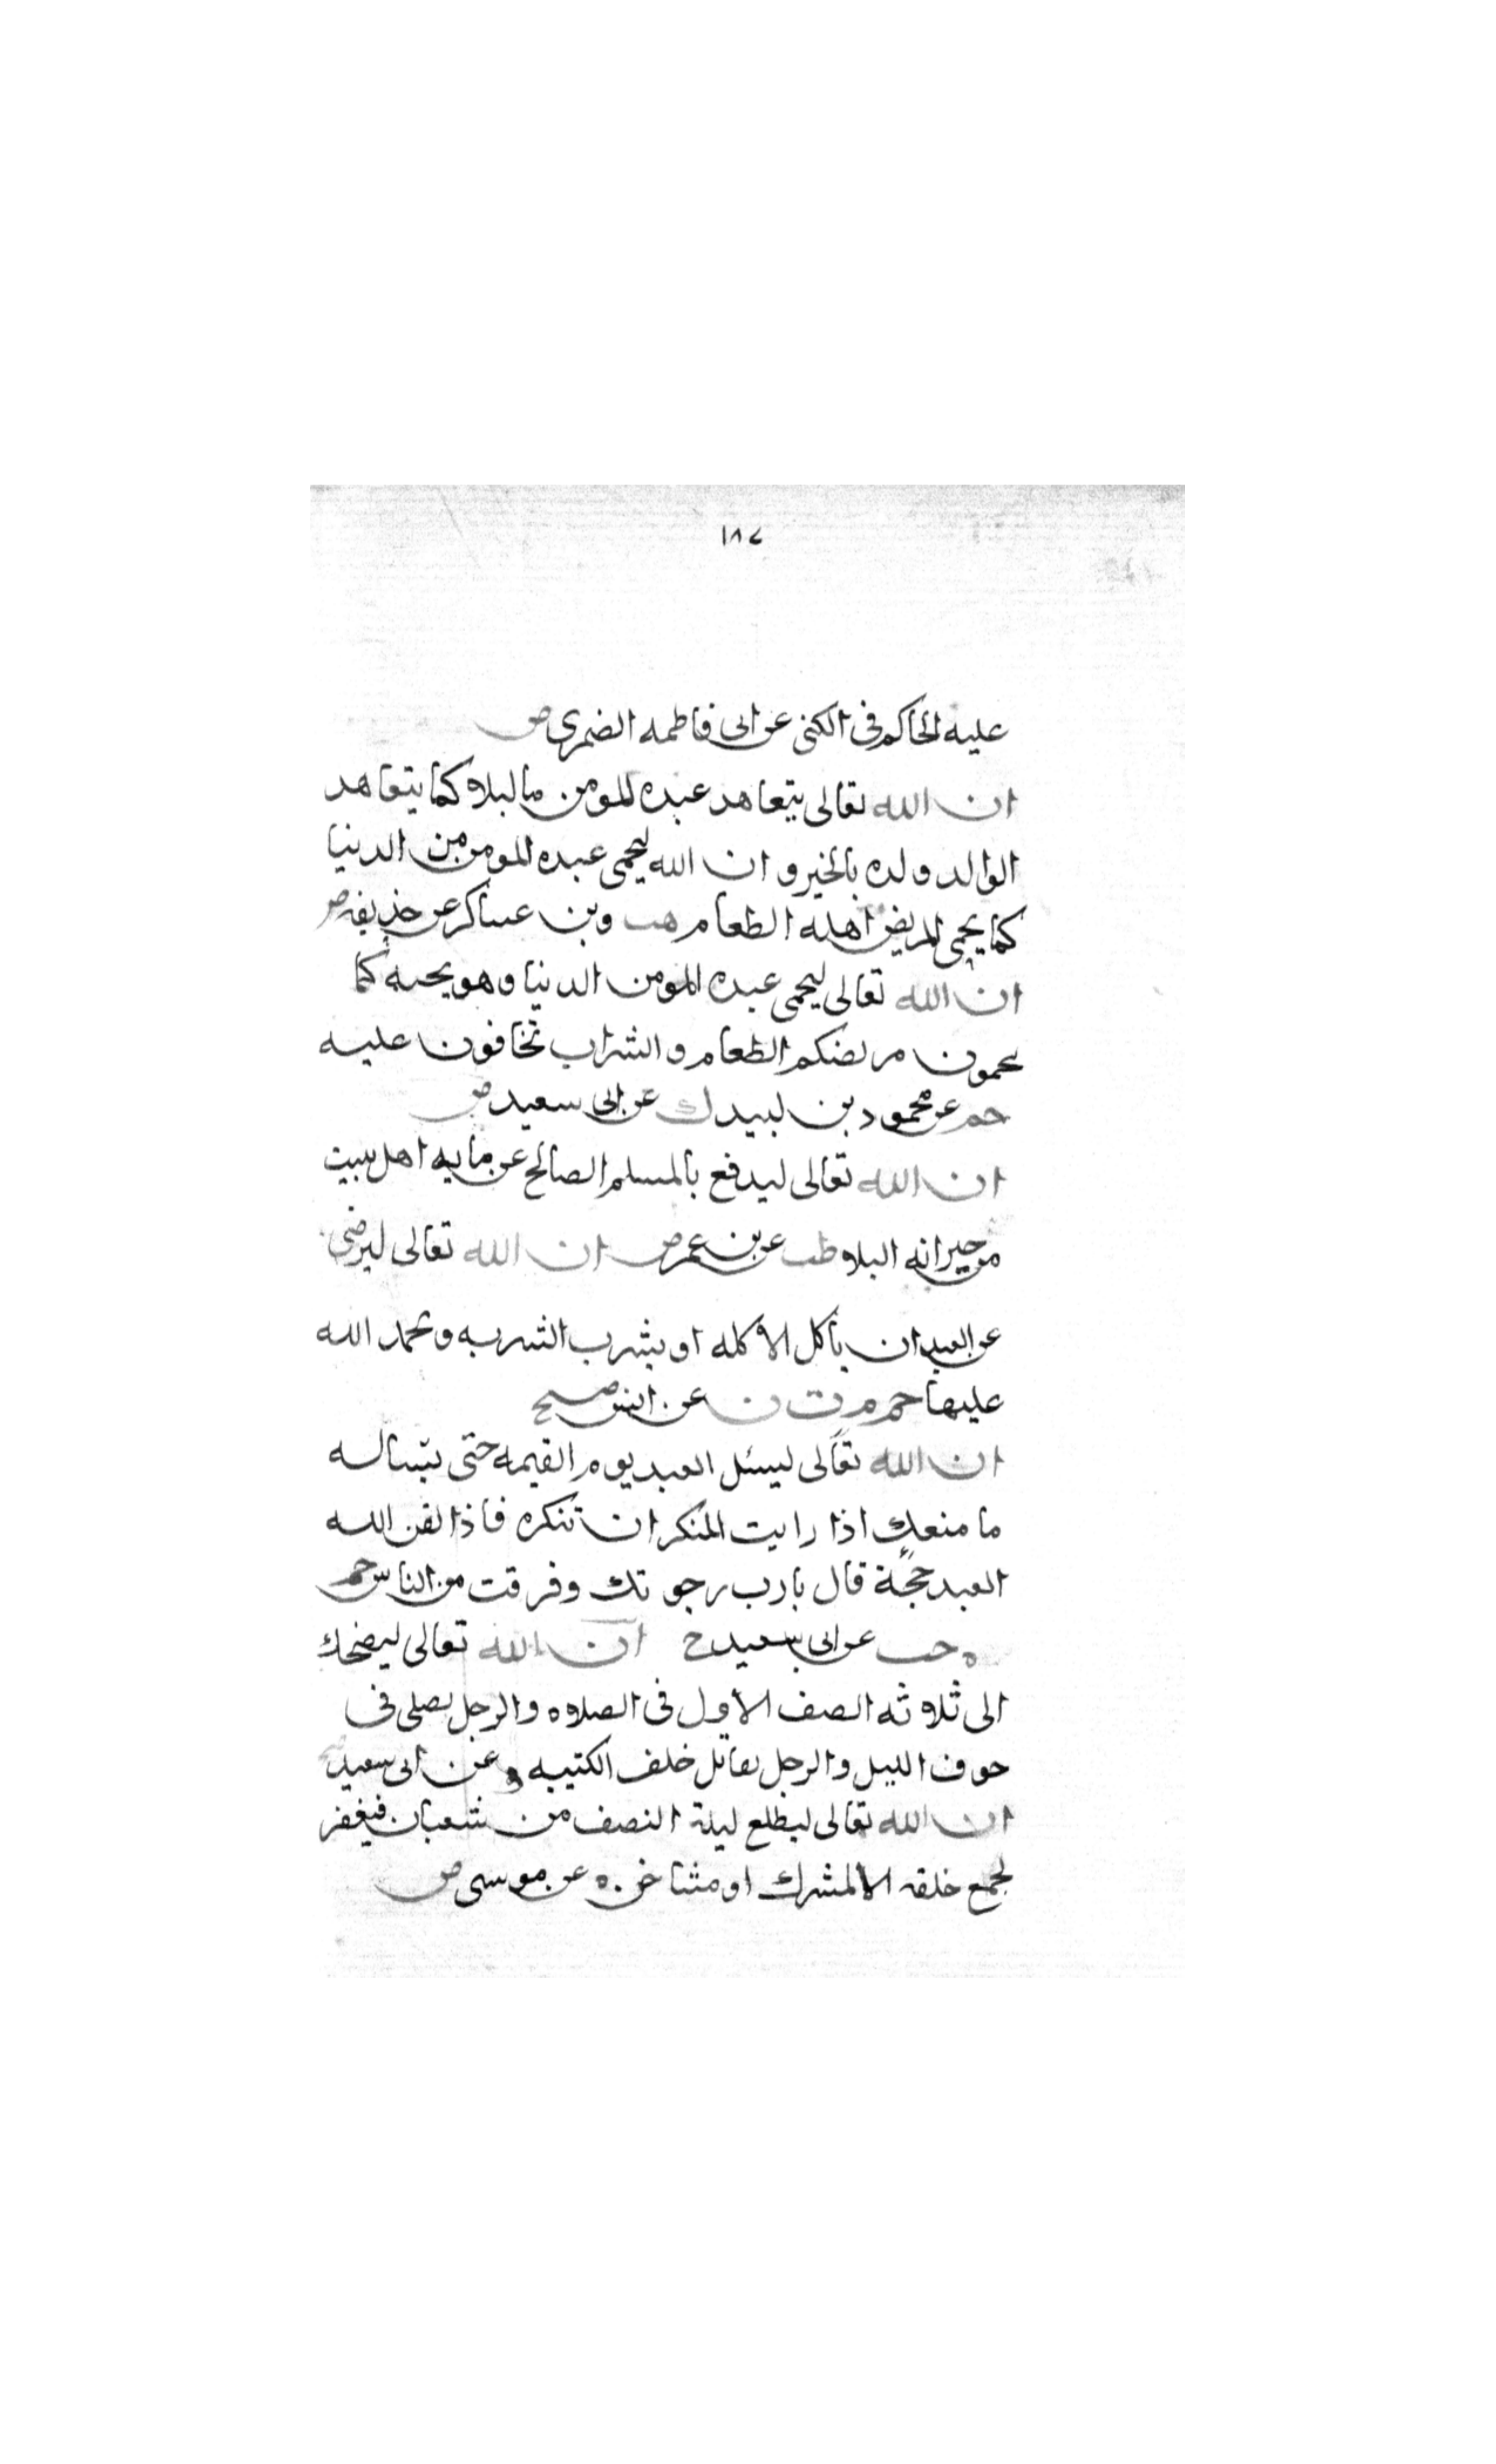 ١٨٧
عليه الحاكم فى الكنى عن ابى فاطمه الضمرى ض
ان الله تعالى يتعاهد عبده المومن بالبلاء كما يتعاهد
الوالد ولده بالخير و ان الله ليحمى عبده المومن من الدنيا
كما يحمى المريض اهله الطعام هب وبن عساكر عن حذيفه ض
ان الله تعالى ليحمى عبده المومن الدنيا وهو يحبه كما
تحمون مريضكم الطعام و الشراب تخافون عليه
حم عن محمود بن لبيد ك عن ابى سعيد ض
ان الله تعالى ليدفع بالمسلم الصالح عن مايه اهل بيت
من جيرانه البلاء طب عن بن عمر ض ان الله تعالى ليرضى
عن العبد ان ياكل الاكله او يشرب الشربه و يحمد الله
عليها حم م ت ن عن انس صح
ان الله تعالى ليسئل العبد يوم القيمه حتى يساله
ما منعك اذا رايت المنكر ان تنكره فاذا لقن الله
العبد حجّة قال يارب رجوتك وفرقت من الناس حم
ه حب عن ابى سعيد ح ان الله تعالى ليضحك
الى ثلاثه الصف الاول فى الصلاه والرجل يصلى فى
جوف الليل والرجل يقاتل خلف الكتيبه ه عن ابى سعيد
ان الله تعالى ليطلع ليلة النصف من شعبان فيغفر
لجميع خلقه الا لمشرك او مشاحن ه عن موسى ض